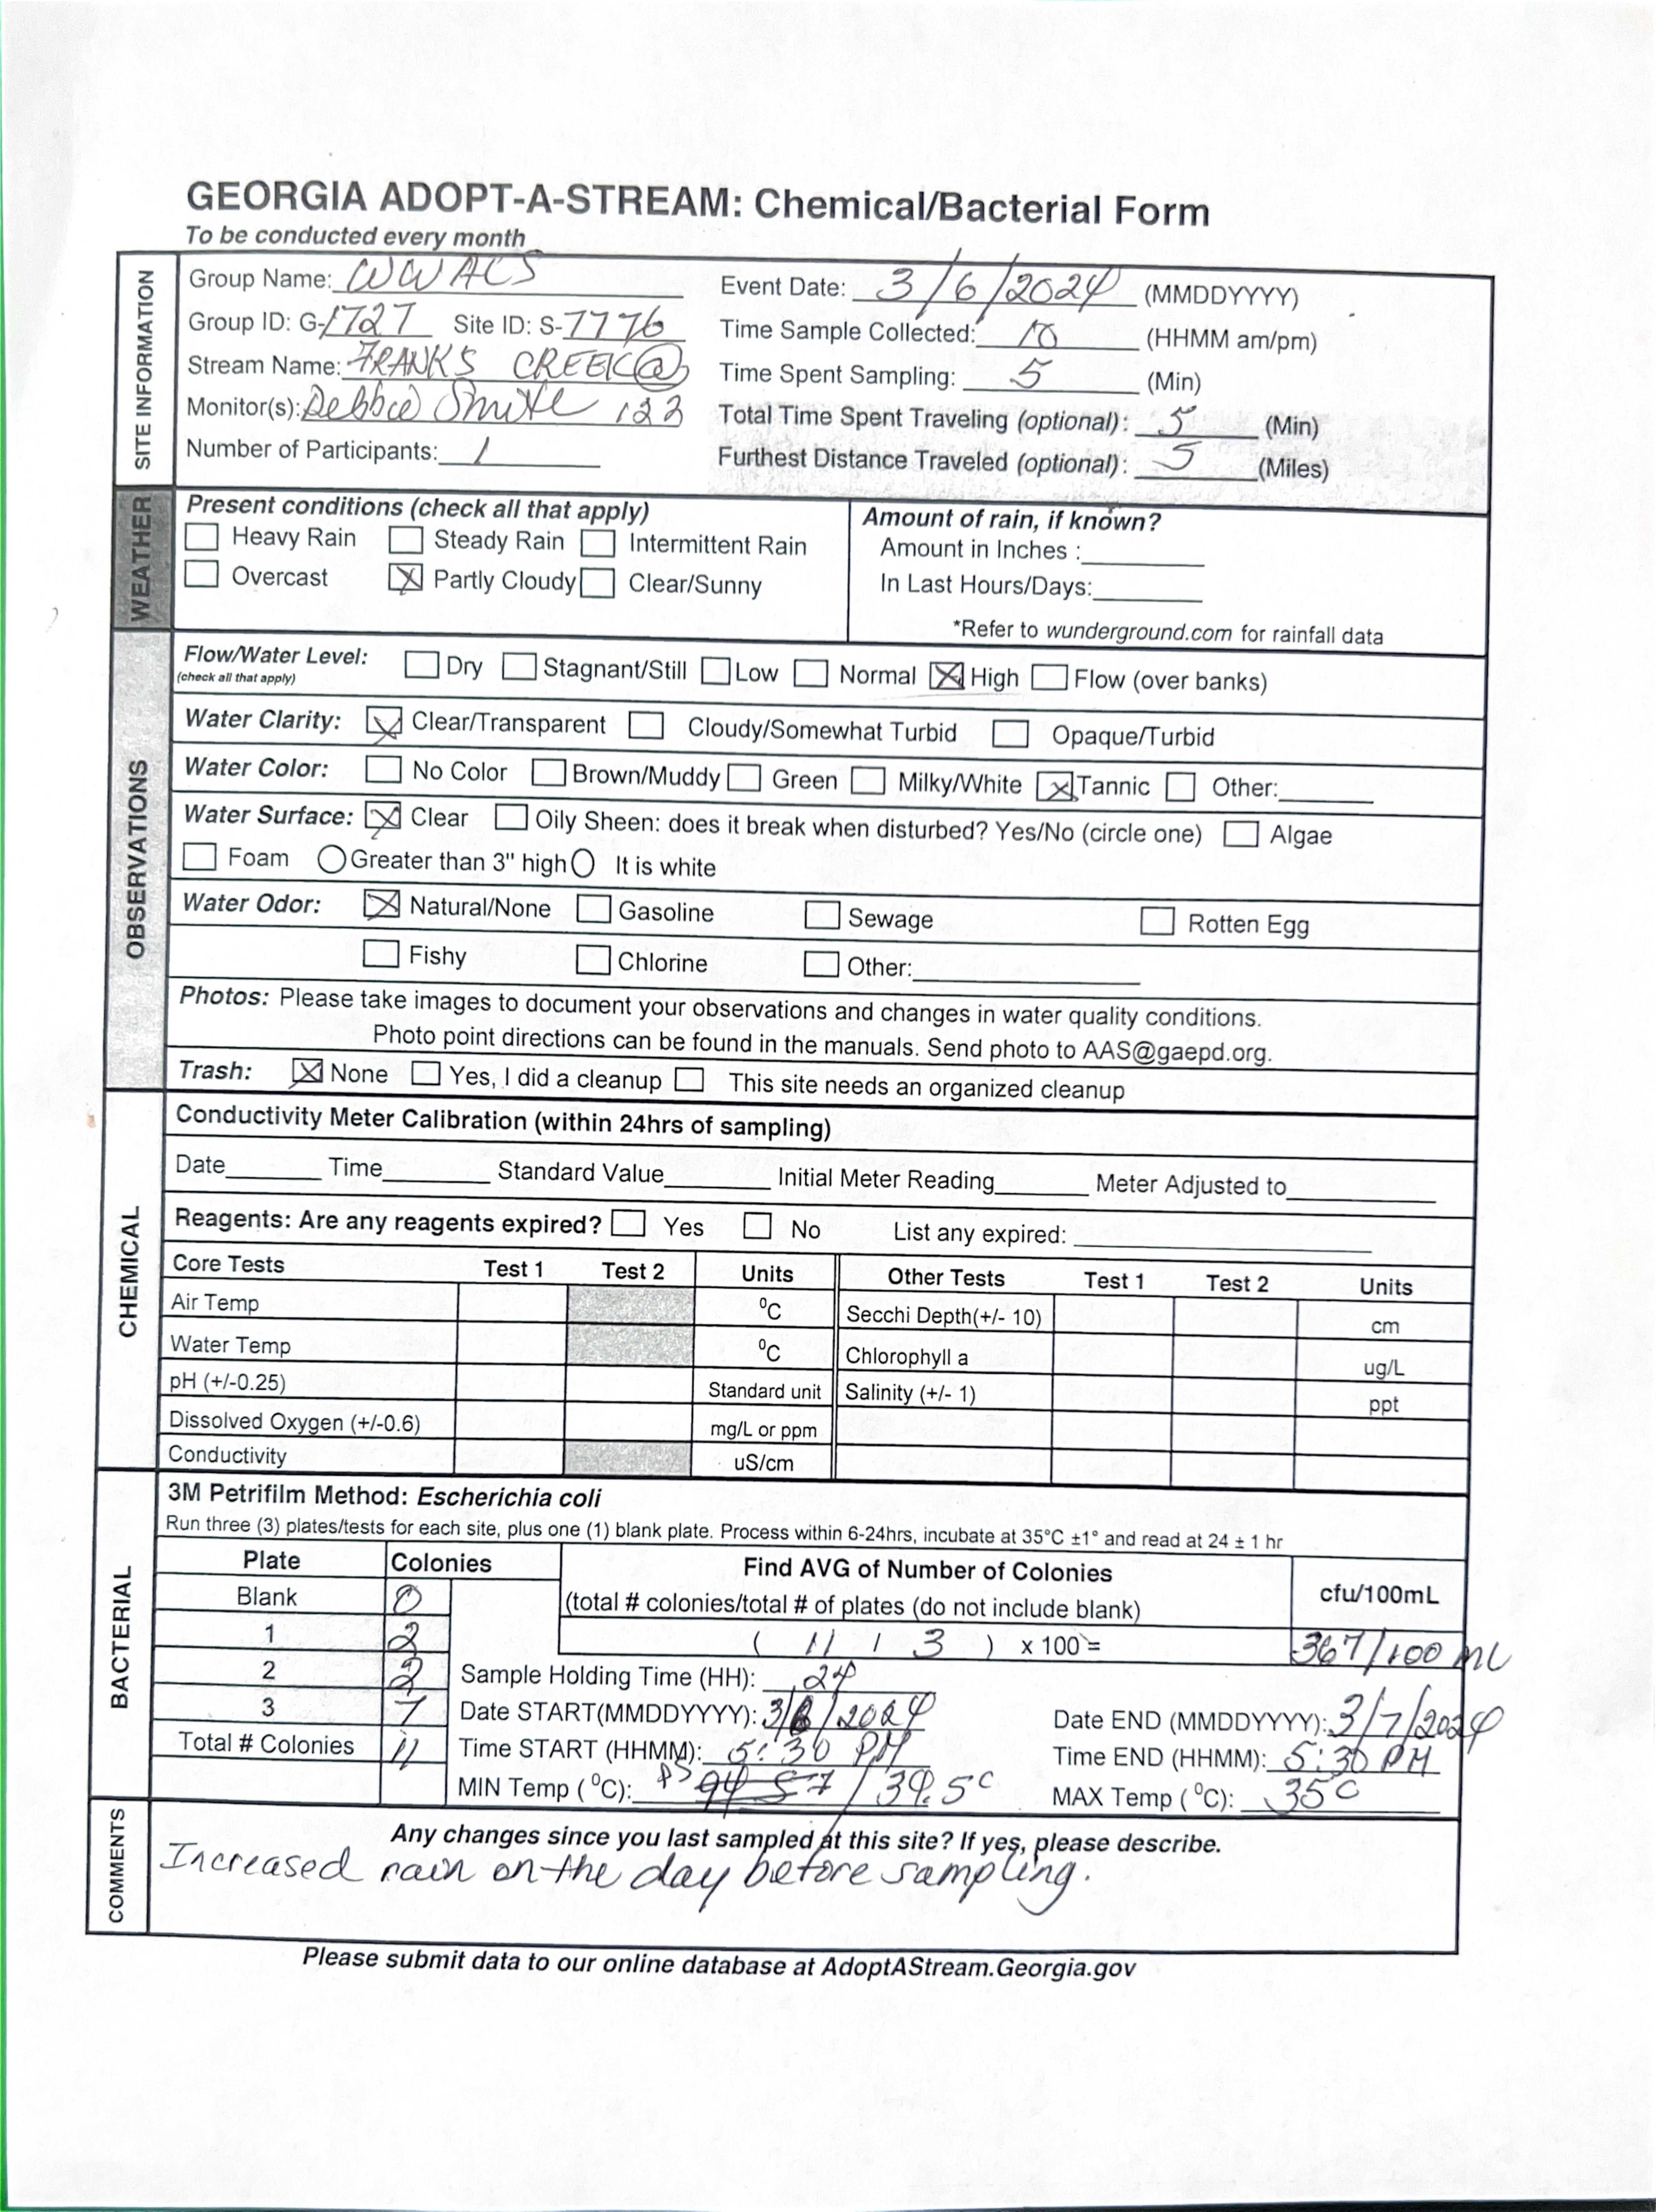 GEORGIA ADOPT-A-STREAM: Chemical/Bacterial Form
To be conducted every month
SITE INFORMATION
Group Name: WWALS
Event Date: 3/6/2024 (MMDDYYYY)
Group ID: G-1727 Site ID: S-7776
Time Sample Collected: 10 (HHMM am/pm)
Stream Name: FRANKS CREEK@
Time Spent Sampling: 5 (Min)
Monitor(s): Debbie Smith 122
Total Time Spent Traveling (optional): 5 (Min)
Number of Participants: 1
Furthest Distance Traveled (optional): 5 (Miles)
WEATHER
Present conditions (check all that apply)
Heavy Rain Steady Rain Intermittent Rain
Overcast Partly Cloudy Clear/Sunny
Amount of rain, if known?
Amount in Inches :
In Last Hours/Days:
*Refer to wunderground.com for rainfall data
OBSERVATIONS
Flow/Water Level: Dry Stagnant/Still Low Normal High Flow (over banks)
(check all that apply)
Water Clarity: Clear/Transparent Cloudy/Somewhat Turbid Opaque/Turbid
Water Color: No Color Brown/Muddy Green Milky/White Tannic Other:
Water Surface: Clear Oily Sheen: does it break when disturbed? Yes/No (circle one) Algae
Foam Greater than 3" high It is white
Water Odor: Natural/None Gasoline Sewage Rotten Egg
Fishy Chlorine Other:
Photos: Please take images to document your observations and changes in water quality conditions.
Photo point directions can be found in the manuals. Send photo to AAS@gaepd.org.
Trash: None Yes, I did a cleanup This site needs an organized cleanup
CHEMICAL
Conductivity Meter Calibration (within 24hrs of sampling)
Date Time Standard Value Initial Meter Reading Meter Adjusted to
Reagents: Are any reagents expired? Yes No List any expired:
Core Tests Test 1 Test 2 Units Other Tests Test 1 Test 2 Units
Air Temp ⁰C Secchi Depth(+/- 10) cm
Water Temp ⁰C Chlorophyll a ug/L
pH (+/-0.25) Standard unit Salinity (+/- 1) ppt
Dissolved Oxygen (+/-0.6) mg/L or ppm
Conductivity uS/cm
BACTERIAL
3M Petrifilm Method: Escherichia coli
Run three (3) plates/tests for each site, plus one (1) blank plate. Process within 6-24hrs, incubate at 35°C ±1° and read at 24 ± 1 hr
Plate Colonies Find AVG of Number of Colonies cfu/100mL
Blank 0 (total # colonies/total # of plates (do not include blank)
1 2 ( 11 / 3 ) x 100 = 367/100 mL
2 2 Sample Holding Time (HH): 24
3 7 Date START(MMDDYYYY): 3/6/2024 Date END (MMDDYYYY): 3/7/2024
Total # Colonies 11 Time START (HHMM): 5:30 PM Time END (HHMM): 5:30 PM
MIN Temp (⁰C): 34.5 C MAX Temp (⁰C): 35 C
COMMENTS
Any changes since you last sampled at this site? If yes, please describe.
Increased rain on the day before sampling.
Please submit data to our online database at AdoptAStream.Georgia.gov